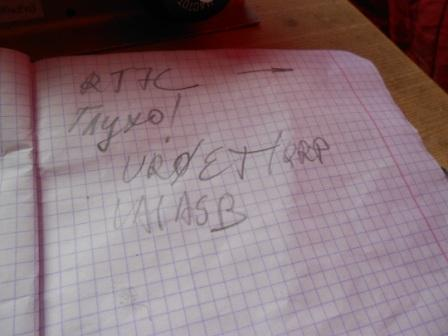 RT7C —
Глухо!
UR0ET/QRP
UA1ASB